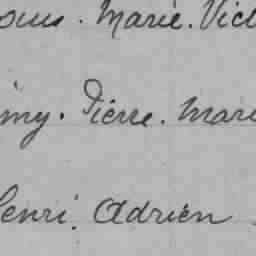 Marie. Vict
my. Pierre. Mari
Henri. Adrien